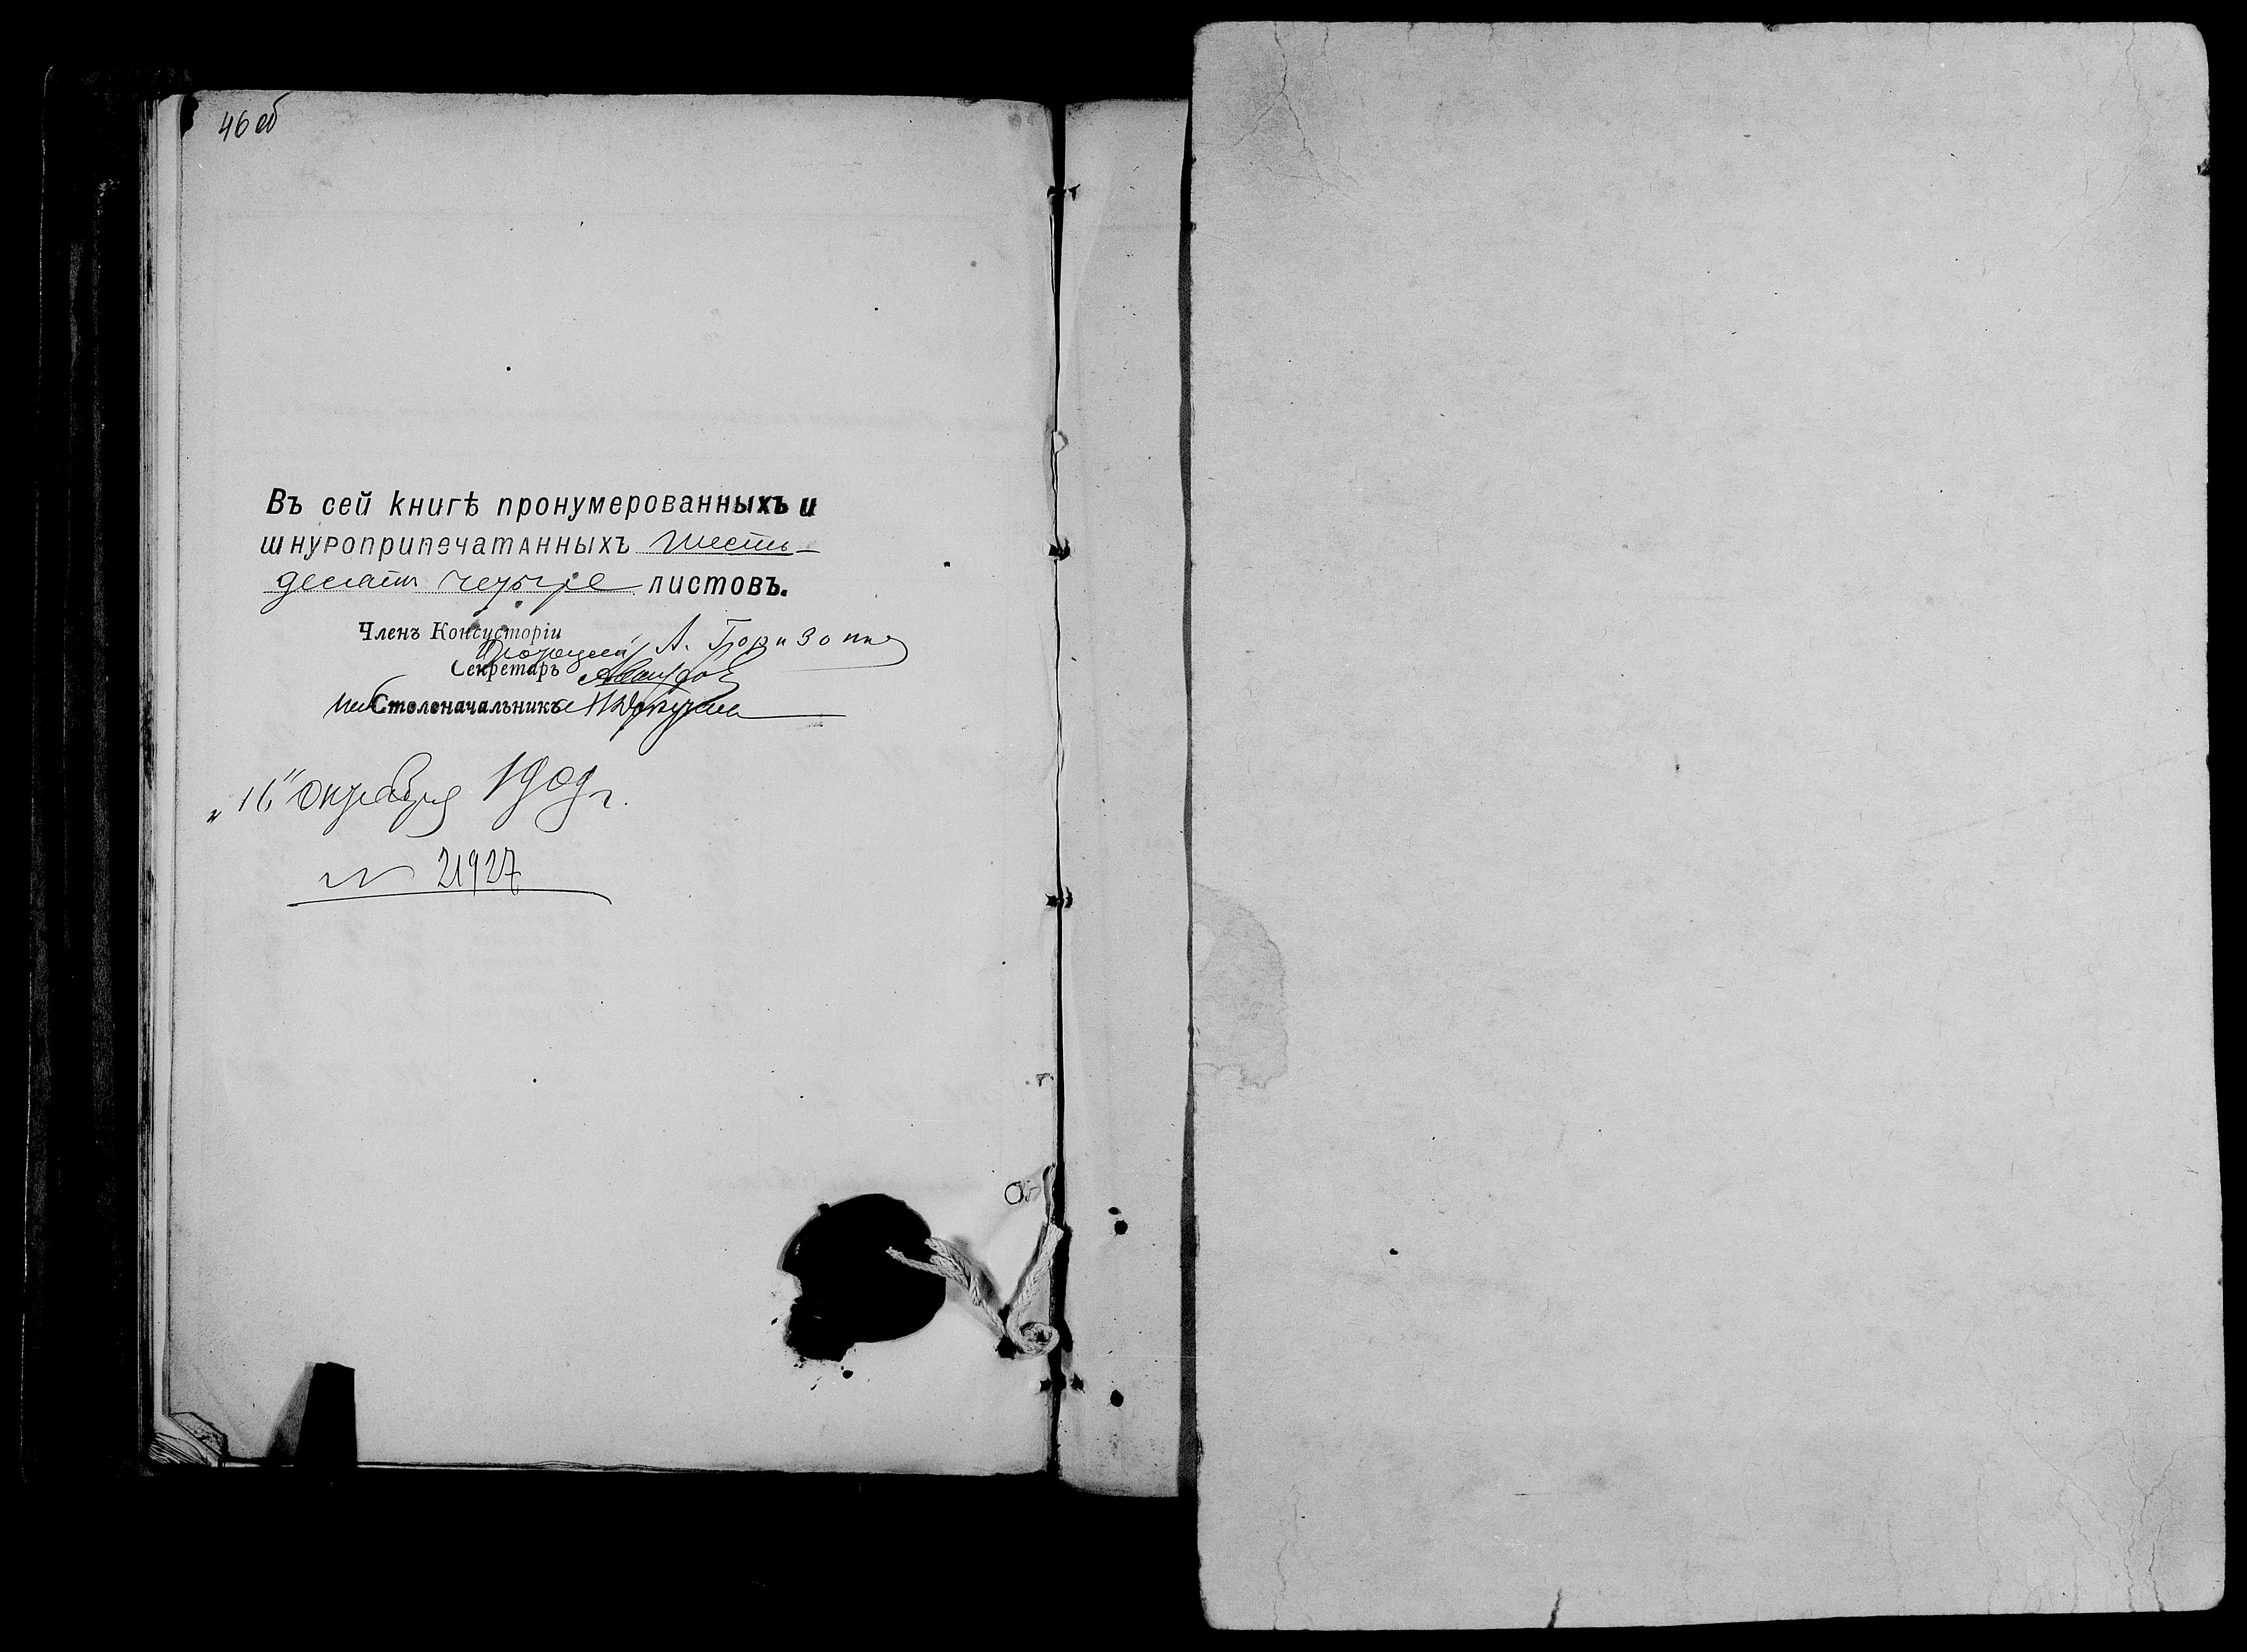 46 об
Въ сей книгѣ пронумерованныхъ и
шнуроприпечатанныхъ шесть-
десятъ четыре листовъ.
Членъ Консисторіи
Протоіерей А. Горизонтовъ
Секретарь
Столоначальникъ
„16" октября 1909 г.
№ 21927